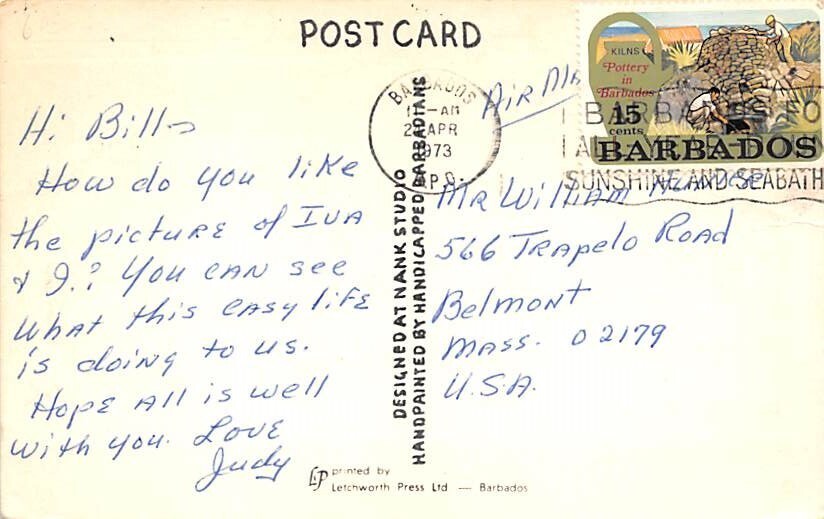 POST CARD
KILNS
Pottery
in
Barbados
15
cents
BARBADOS
BARBADOS
AM
APR
1973
G.P.O.
BARBADOS FO
ALL YEAR
SUNSHINE AND SEABATH
AIR MAIL
Hi Bill~
How do you like
the picture of IVA
& I.? You can see
what this easy life
is doing to us.
Hope all is well
with you. Love
Judy
DESIGNED AT NANK STUDIO
HANDPAINTED BY HANDICAPPED BARBADIANS
Mr William
566 Trapelo Road
Belmont
Mass. 02179
U.S.A.
LP printed by
Letchworth Press Ltd — Barbados